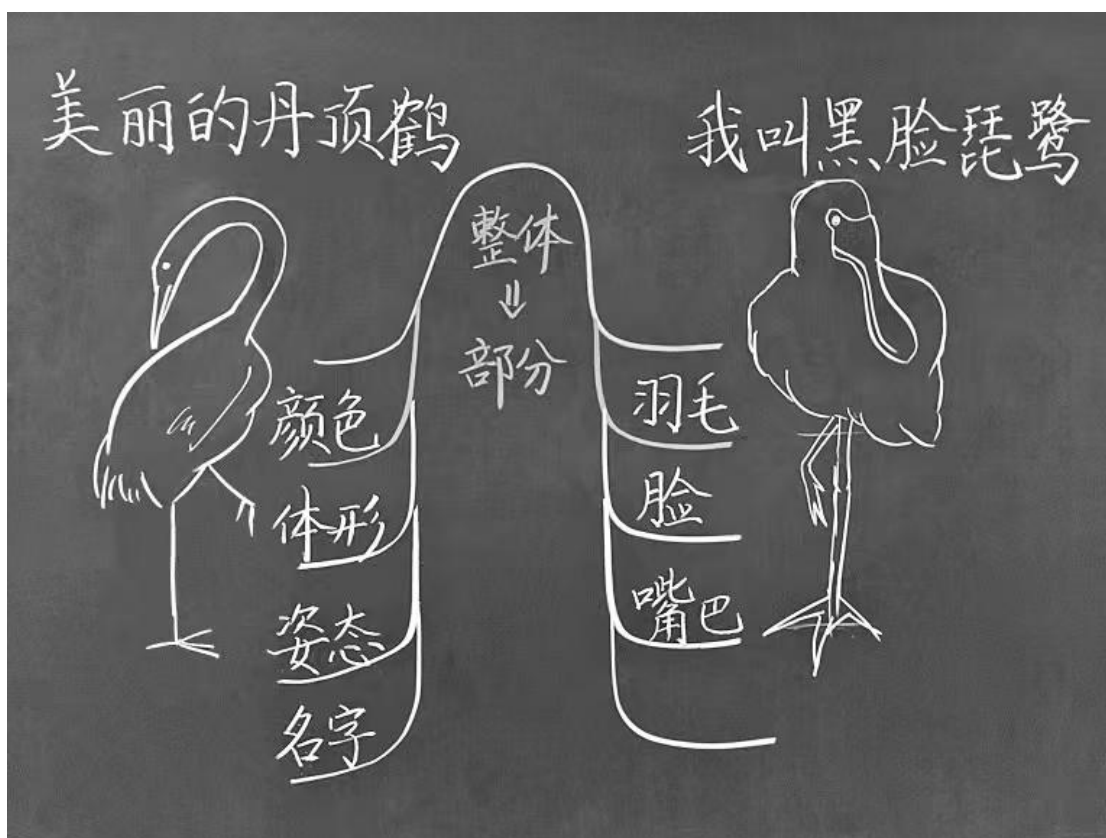 美丽的丹顶鹤
我叫黑脸琵鹭
整体
⇓
部分
颜色
体形
姿态
名字
羽毛
脸
嘴巴